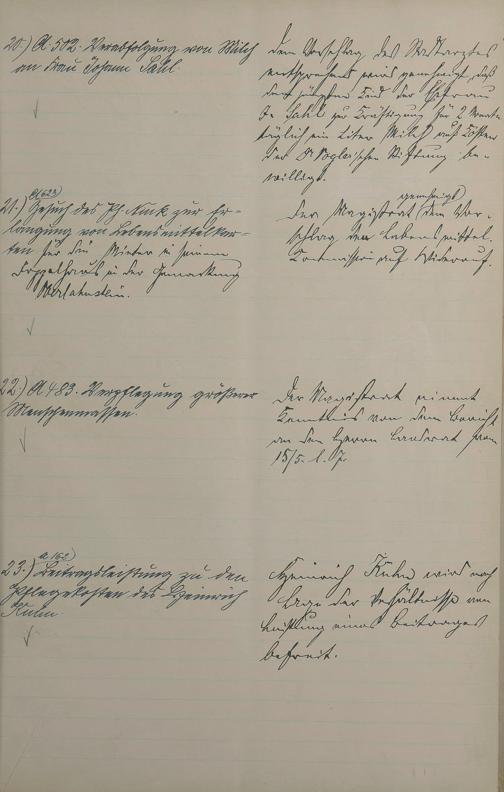 20.) A. 502. Verabfolgung von Milch
an Frau Johann Sahl.
Dem Vorschlag des Stadtarztes
entsprechend wird genehmigt, daß
dem jüngsten Kind der Ehefrau
Sahl zur Kräftigung für 2 Monate
täglich ein Liter Milch auf Kosten
der Stiftung be-
willigt.
21.) Gesuch des Ph. zur Er-
langung von Lebensmittelkar-
ten für die Mieter in seinem
Doppelhaus in der Gemarkung
Oberlahnstein.
genehmigt
Der Magistrat dem Vor-
schlag der Lebensmittel
Kommission auf Widerruf.
22.) A 483. Verpflegung größerer
Menschenmassen.
Der Magistrat nimmt
Kenntnis von dem Bericht
an den Herrn Landrat vom
15/5. l. J.
A 162)
23.) Beitragsleistung zu den
Pflegekosten des Heinrich
Kuhn.
Heinrich Kuhn wird nach
Lage der Verhältnisse von
Leistung eines Beitrages
befreit.